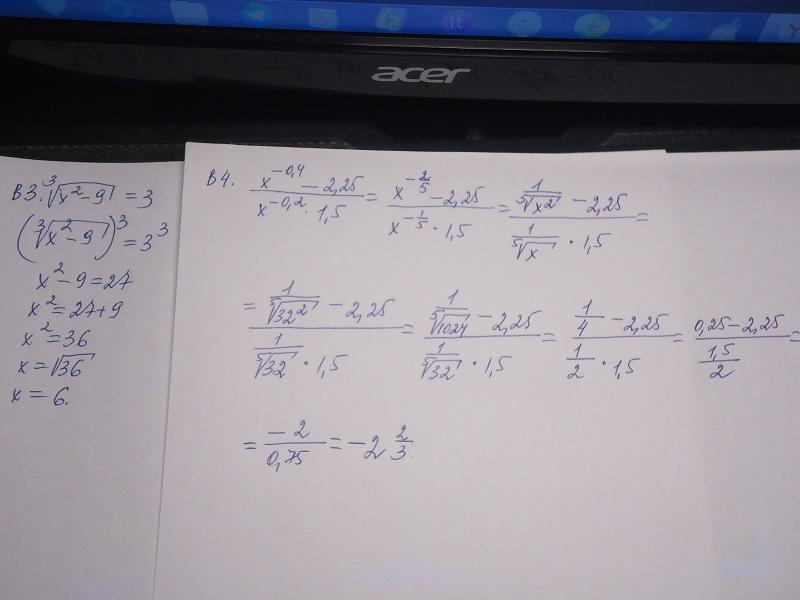 acer
В3. ∛(x² - 9) = 3
(∛(x² - 9))³ = 3³
x² - 9 = 27
x² = 27 + 9
x² = 36
x = √36
x = 6.
В4. (x^(-0,4) - 2,25)/(x^(-0,2) · 1,5) = (x^(-2/5) - 2,25)/(x^(-1/5) · 1,5) = (1/⁵√(x²) - 2,25)/(1/⁵√x · 1,5) =
= (1/⁵√(32²) - 2,25)/(1/⁵√32 · 1,5) = (1/⁵√1024 - 2,25)/(1/⁵√32 · 1,5) = (1/4 - 2,25)/(1/2 · 1,5) = (0,25 - 2,25)/(1,5/2) =
= (-2)/(0,75) = -2 2/3.